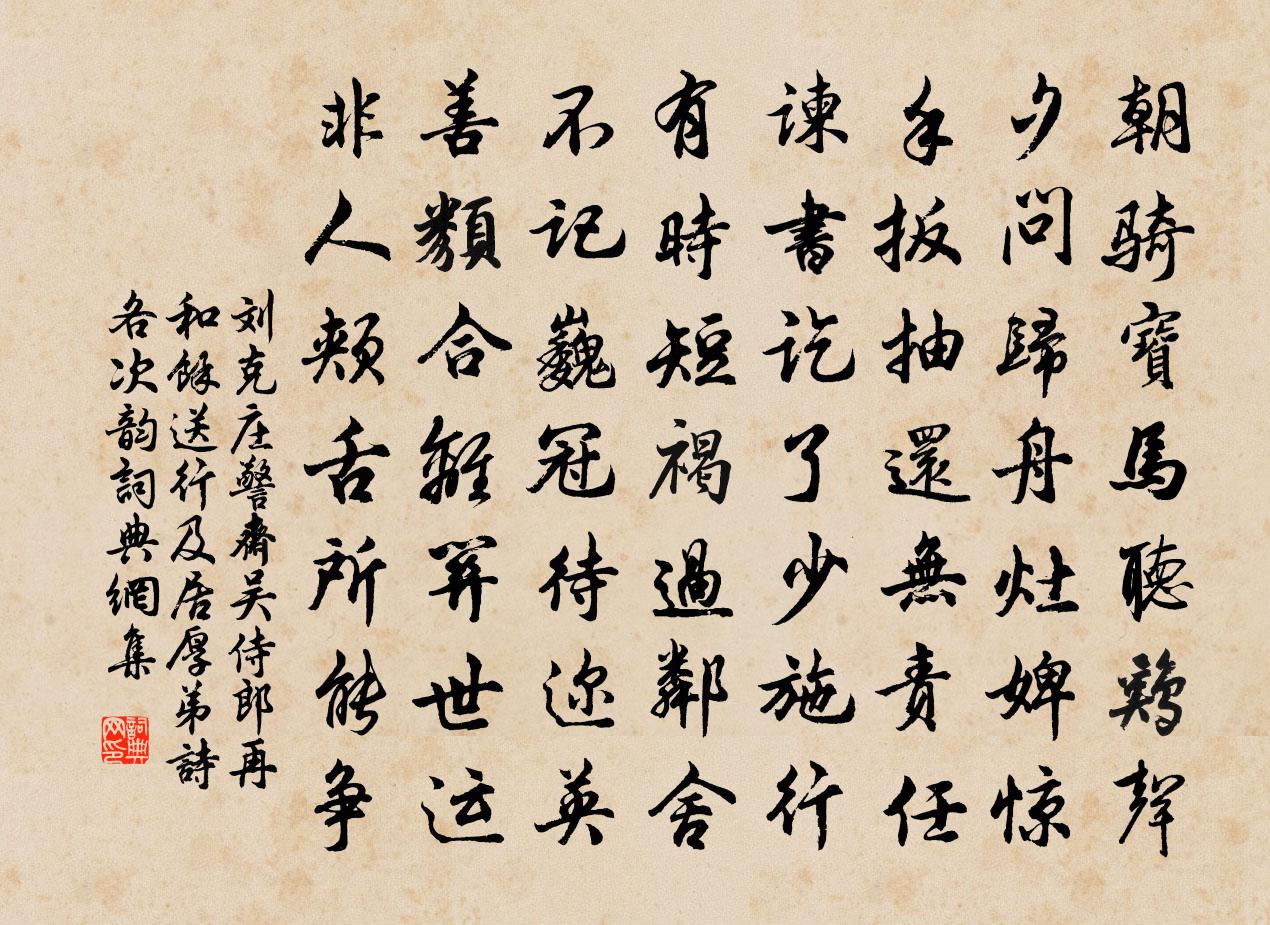 朝騎寶馬聽鷄聲
夕問歸舟灶婢惊
手扳抽還無責任
諫書訖了少施行
有時短褐過鄰舍
不記巍冠待迩英
善類合離關世运
非人頰舌所能争
刘克庄警齋吴侍郎再
和餘送行及居厚弟詩
各次韵詞典網集
詞典
网印